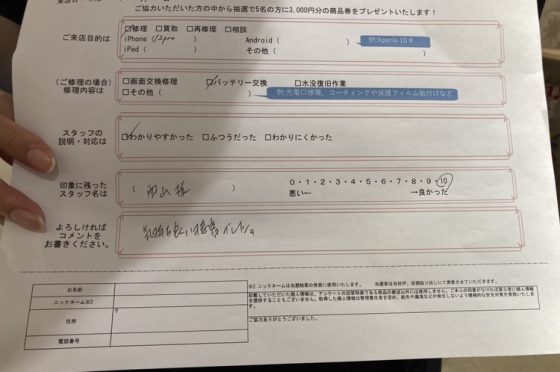 ご協力いただいた方の中から抽選で5名の方に3,000円分の商品券をプレゼントいたします!
ご来店目的は
☑修理 □買取 □再修理 □相談
iPhone (12pro ) Android ( ) 例:Xperia 10Ⅱ
iPad ( ) その他 ( )
(ご修理の場合)
修理内容は
□画面交換修理 ☑バッテリー交換 □水没復旧作業
□その他 ( ) 例:充電口修理、コーティングや保護フィルム貼付けなど
スタッフの
説明・対応は
☑わかりやすかった □ふつうだった □わかりにくかった
印象に残った
スタッフ名は
( 西山 様 )
0・1・2・3・4・5・6・7・8・9・10
悪い← →良かった
よろしければ
コメントを
お書きください。
お名前
ニックネーム※2
住所
〒
電話番号
※2 ニックネームは当選結果の発表に使用いたします。
ご協力ありがとうございました。